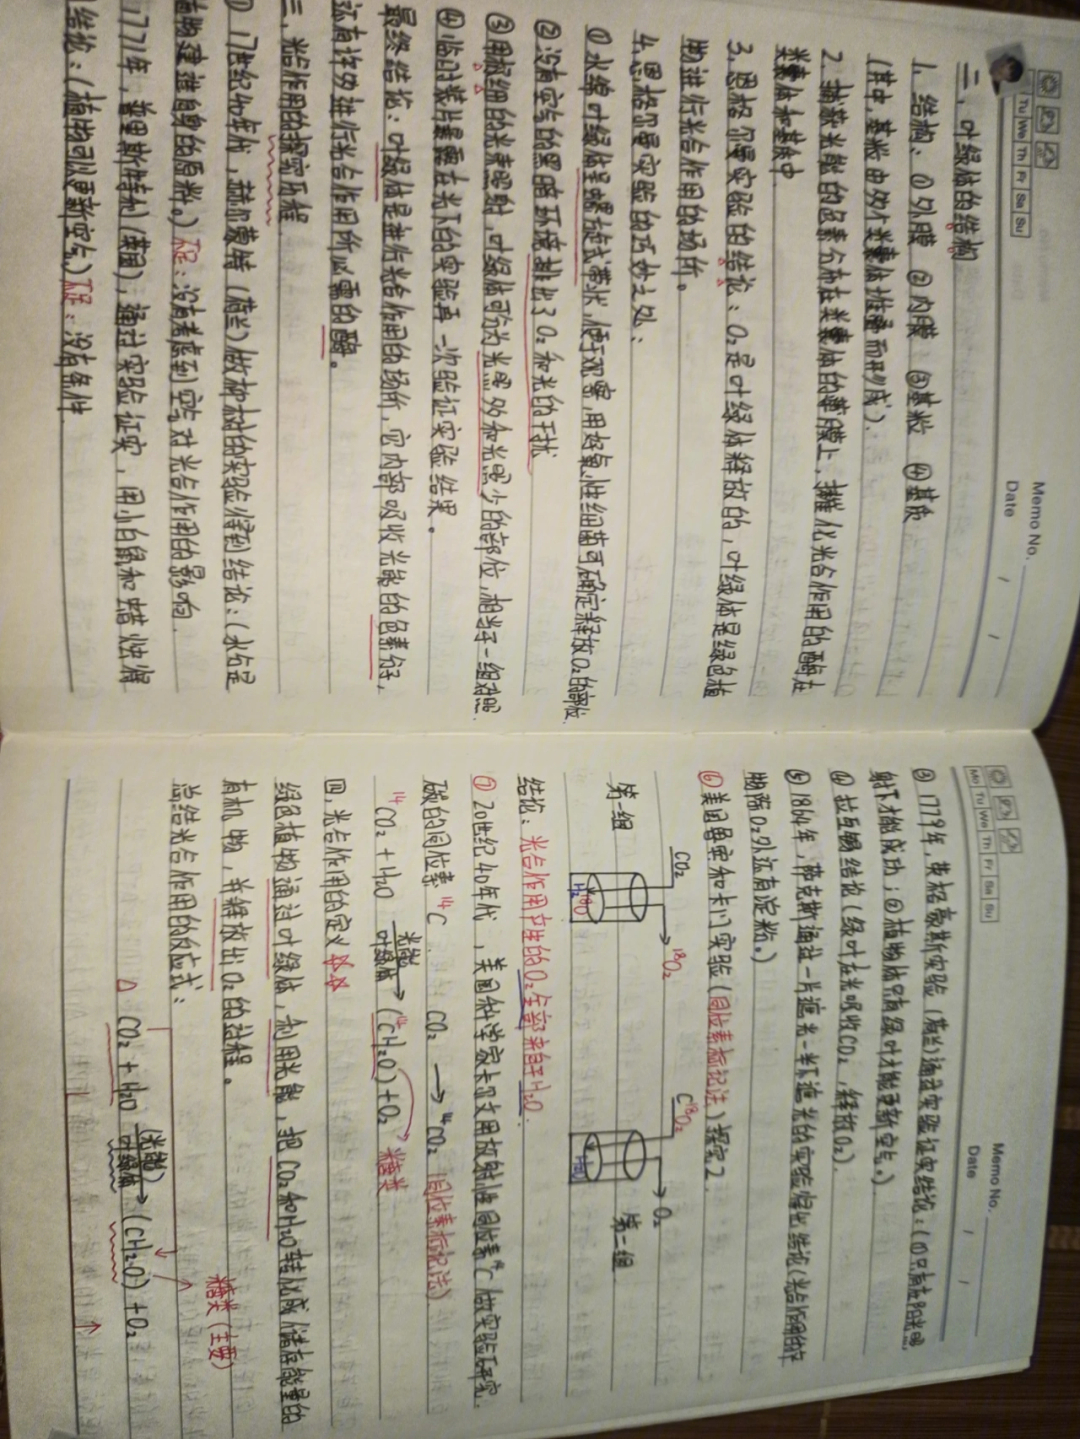 Memo No.
Date / /
Tu We Th Fr Sa Su
二、叶绿体的结构
1. 结构：①外膜 ②内膜 ③基粒 ④基质
(其中,基粒由多个类囊体堆叠而形成).
2. 捕获光能的色素分布在类囊体的薄膜上，催化光合作用的酶在
类囊体和基质中.
3. 恩格尔曼实验的结论：O₂是叶绿体释放的，叶绿体是绿色植
物进行光合作用的场所。
4. 恩格尔曼实验的巧妙之处：
① 水绵叶绿体呈螺旋式带状，便于观察，用好氧性细菌可确定释放O₂的部位.
② 没有空气的黑暗环境排出了O₂和光的干扰
③ 用极细的光束照射，叶绿体可分为光照多和光照少的部位，相当于一组对照.
④ 临时装片暴露在光下的实验再一次验证实验结果。
最终结论：叶绿体是进行光合作用的场所，它内部吸收光能的色素分子，
还有许多进行光合作用所必需的酶。
三、光合作用的探究历程
① 17世纪40年代，赫尔蒙特（荷兰）做种树的实验得到结论：(水分是
植物建造自身的原料。) 不足：没有考虑到空气对光合作用的影响.
1771年，普里斯特利（英国），通过实验证实，用小白鼠和蜡烛
结论：(植物可以更新空气) 不足：没有条件.
Memo No.
Date / /
Mo Tu We Th Fr Sa Su
③ 1779年，英格豪斯实验（荷兰）通过实验证实结论：(①只有在阳光照
射下才能成功；②植物体只有绿叶才能更新空气。)
④ 拉瓦锡结论（绿叶在光吸收CO₂，释放O₂).
⑤ 1864年，萨克斯通过一片遮光一半不遮光的实验得出结论(光合作用的产
物除O₂外还有淀粉。)
⑥ 美国鲁宾和卡门实验（同位素标记法）探究了.
CO₂ ¹⁸O₂ C¹⁸O₂ O₂
第一组 H₂¹⁸O H₂O 第二组
结论：光合作用产生的O₂全部来自于H₂O.
⑦ 20世纪40年代，美国科学家卡尔文用放射性同位素¹⁴C做实验研究.
碳的同位素 ¹⁴C. CO₂ → ¹⁴CO₂ 同位素标记法)
¹⁴CO₂ + H₂O 光能 叶绿体 → (¹⁴CH₂O) + O₂ 糖类
四、光合作用的定义 ☆☆
绿色植物通过叶绿体，利用光能，把CO₂和H₂O转化成储存能量的
有机物，并释放出O₂的过程。
总结光合作用的反应式：
糖类（主要）
CO₂ + H₂O (光能) 叶绿体 → (CH₂O) + O₂